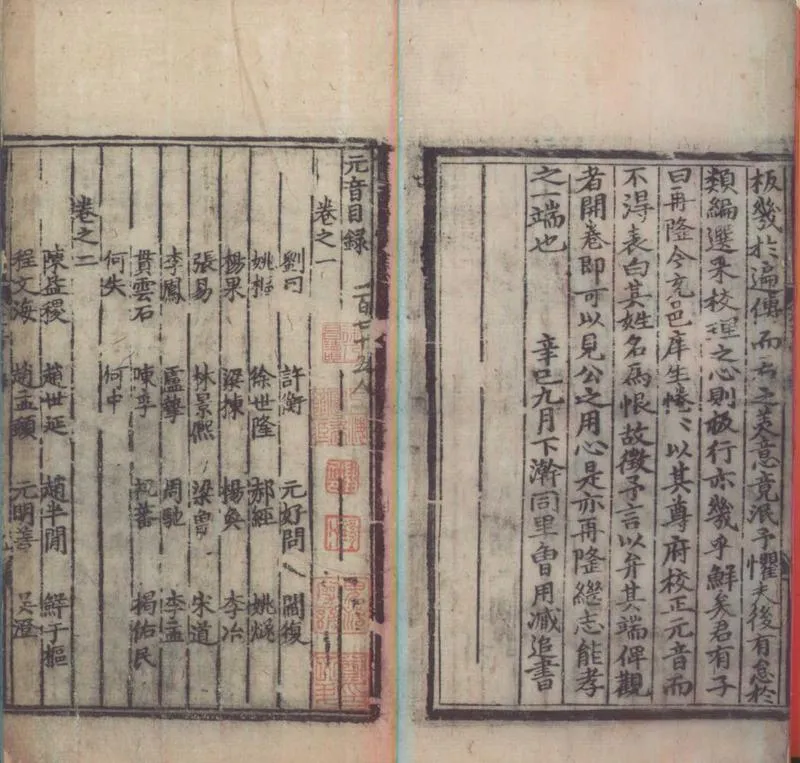 板幾於遍傳而君之美意竟泯予懼夫後有怠於
類編選采校理之心則板行亦幾乎鮮矣君有子
曰再隆今充邑庠生惓〻以其尊府校正元音而
不得表白其姓名為恨故徵予言以弁其端俾觀
者開卷即可以見公之用心是亦再隆繼志能孝
之一端也 辛巳九月下澣同里曾用臧追書
元音目錄 百七十五人
卷之一
劉 許衡 元好問 閻復
姚樞 徐世隆 郝經 姚燧
楊果 梁棟 楊奐 李冶
張易 林景熙 梁曾 宋道
李鳳 盧摯 周馳 李孟
貫雲石 陳孚 祝蕃 揭佑民
何失 何中
卷之二
陳益稷 趙世延 趙半閒 鮮于樞
程文海 趙孟頫 元明善 吳澄